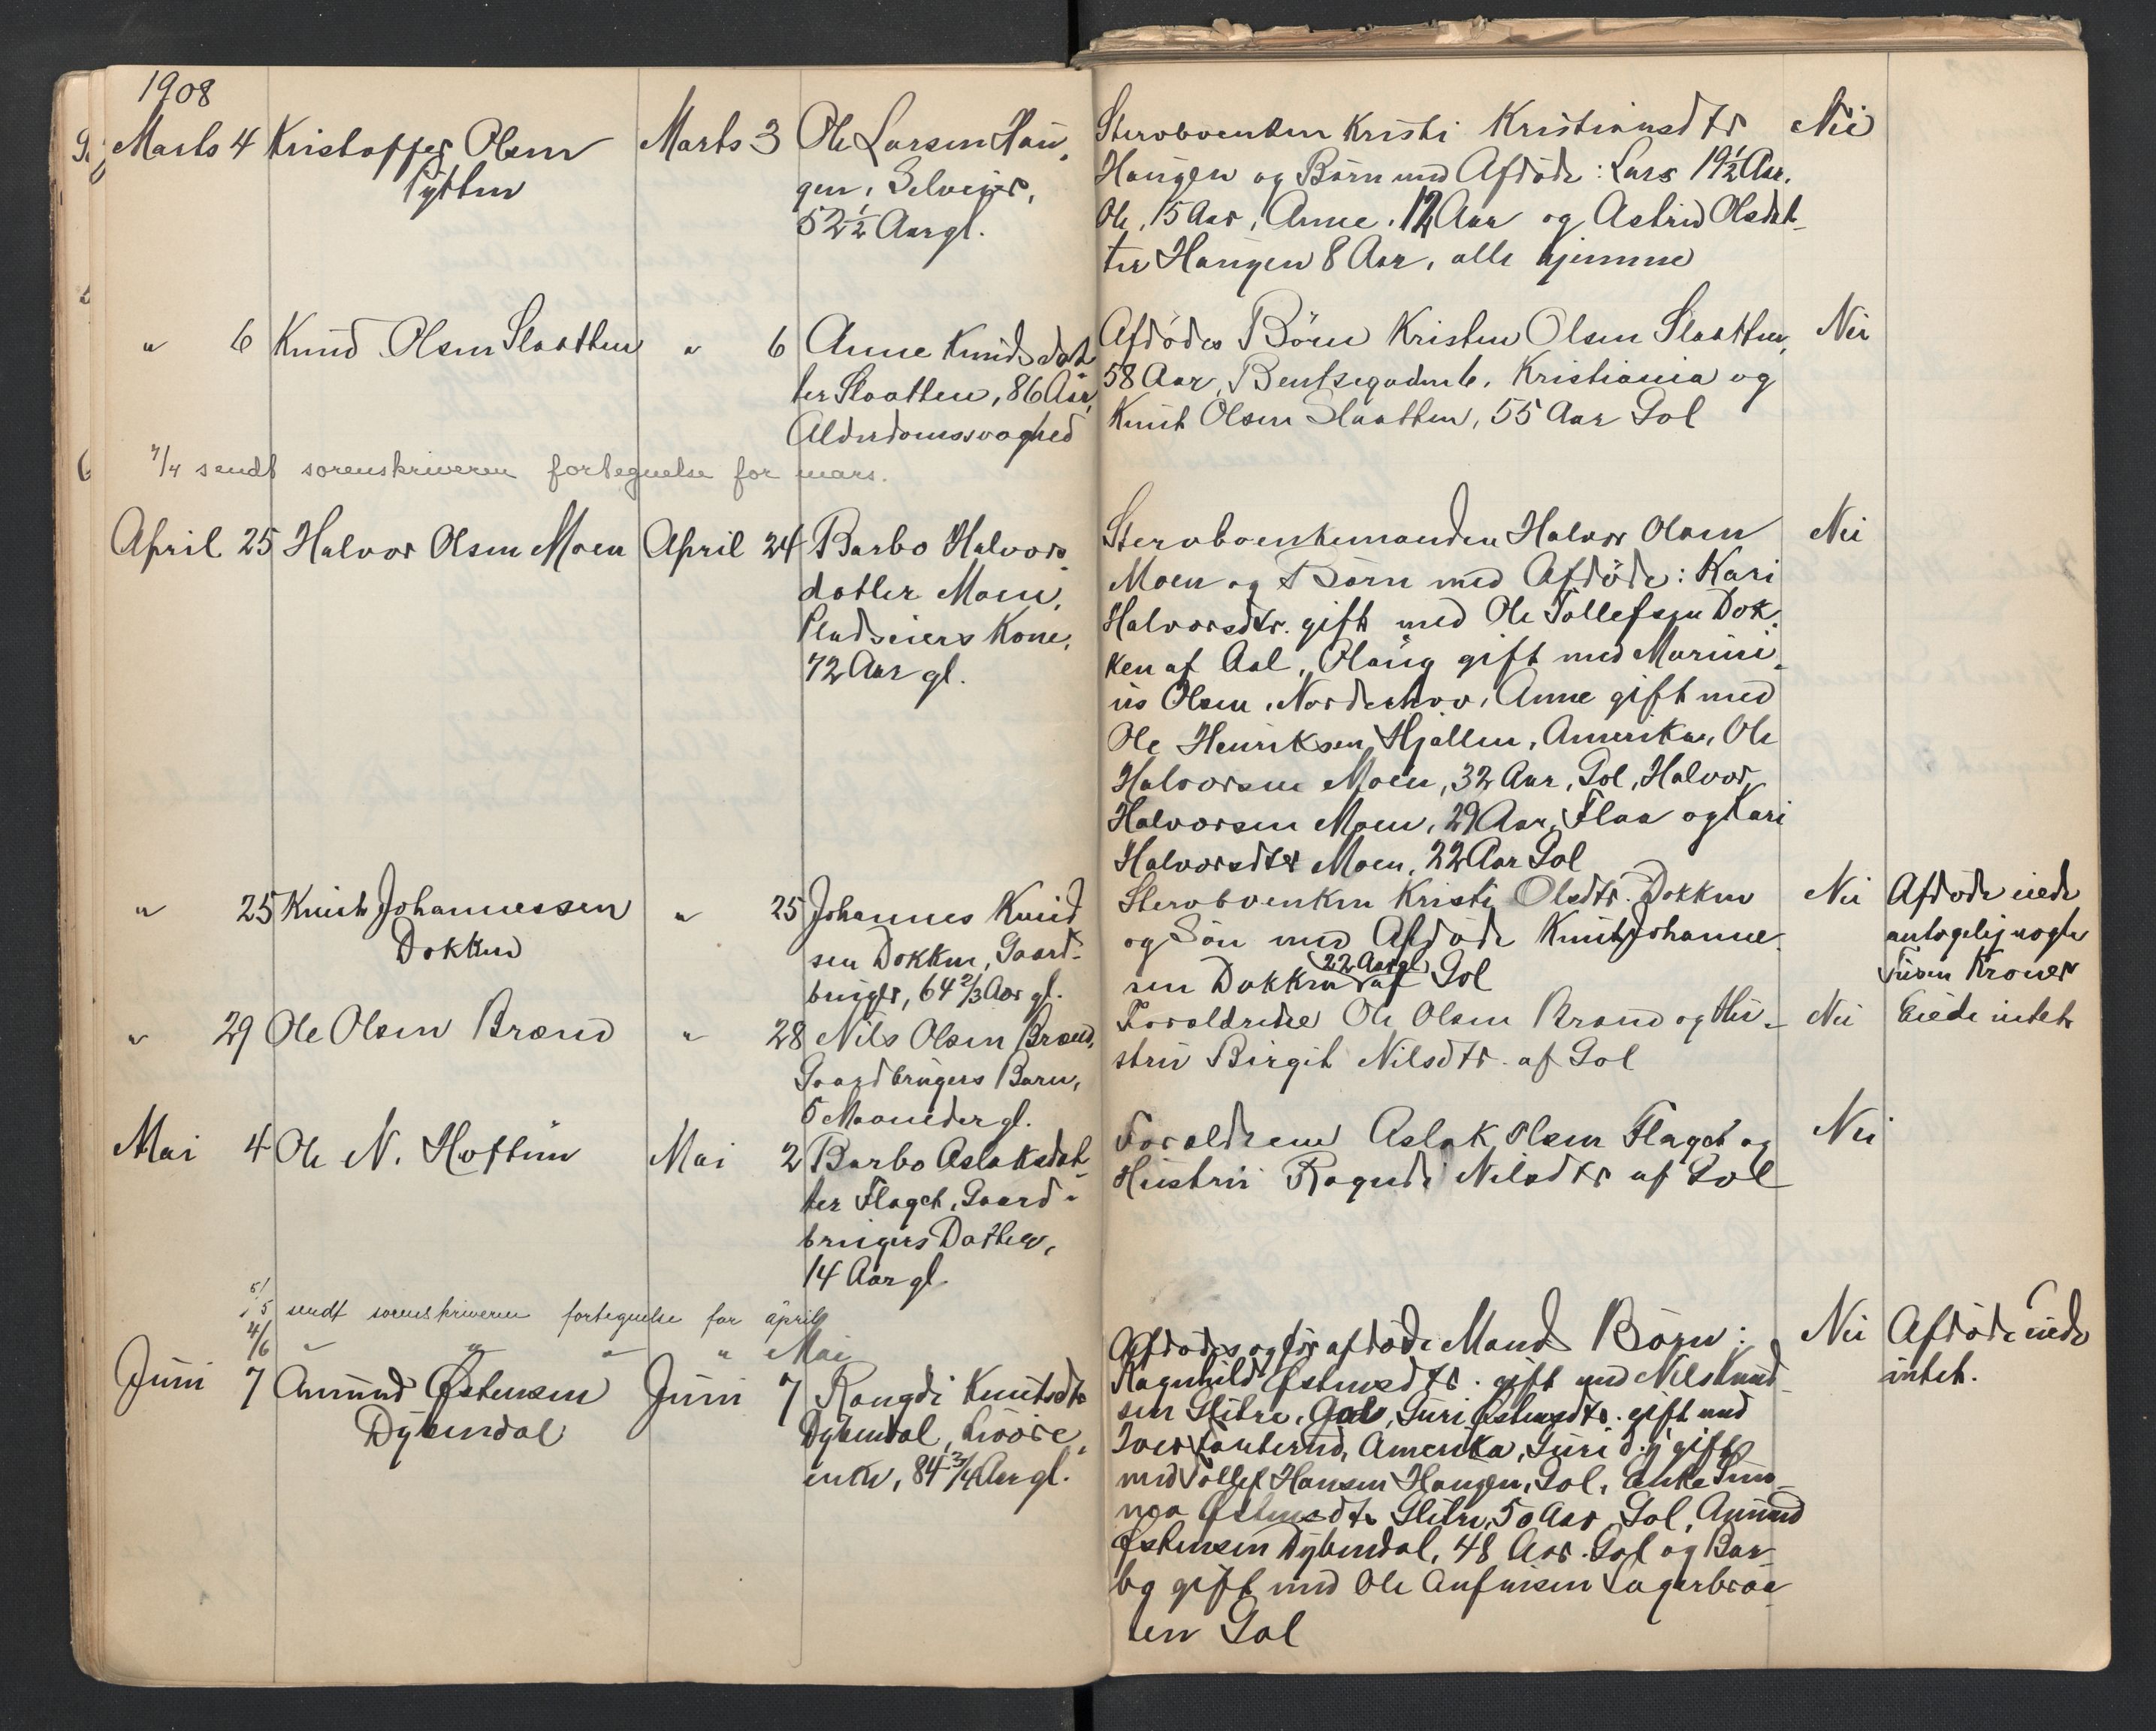 1908
Marts 4 Kristoffer Olsen Marts 3 Ole Larsen Hau-
Pytten gen, Selveier,
52½ Aar gl.
Stervboenken Kristi Kristiansdtr Nei
Haugen og Børn med Afdøde: Lars 19½ Aar,
Ole, 15 Aar, Anne, 12 Aar og Astrid Olsdat-
ter Haugen 8 Aar, alle hjemme
" 6 Knud Olsen Slaatten " 6 Anne Knudsdat
ter Slaatten, 86 Aar,
Alderdomssvaghed
Afdødes Børn Kristen Olsen Slaatten, Nei
58 Aar, Bentsegaden 6, Kristiania og
Knut Olsen Slaatten, 55 Aar Gol
7/4 sendt sorenskriveren fortegnelse for mars.
April 25 Halvor Olsen Moen April 24 Barbo Halvors-
datter Moen,
Pladseiers Kone,
72 Aar gl.
Stervboenkemanden Halvor Olsen Nei
Moen og Børn med Afdøde: Kari
Halvorsdtr. gift med Ole Tollefsen Dok-
ken af Aal, Olaug gift med Marini-
us Olsen, Norderhov, Anne gift med
Ole Henriksen Hjallen, Amerika, Ole
Halvorsen Moen, 32 Aar, Gol, Halvor
Halvorsen Moen, 29 Aar, Flaa og Kari
Halvorsdtr Moen, 22 Aar Gol
" 25 Knut Johannessen " 25 Johannes Knud
Dokken sen Dokken, Gaard-
bruger, 64 2/3 Aar gl.
Stervboenken Kristi Olsdtr. Dokken Nei Afdøde eiede
og Søn med Afdøde Knut Johanne- antagelig nogle
sen Dokken 22 Aar gl af Gol Tusen Kroner
" 29 Ole Olsen Brænd " 28 Nils Olsen Brænd,
Gaardbrugers Barn,
5 Maaneder gl.
Forældrene Ole Olsen Brænd og Hu- Nei Eiede intet
stru Birgit Nilsdtr. af Gol
Mai 4 Ole N. Hoftun Mai 2 Barbo Aslaksdat
ter Flaget, Gaard-
brugers Datter,
14 Aar gl.
Forældrene Aslak Olsen Flaget og Nei
Hustru Ragndi Nilsdtr af Gol
5/5 sendt sorenskriveren fortegnelse for april
4/6 " " " " Mai
Juni 7 Amund Østensen Juni 7 Rangdi Knutsdtr
Dybendal Dybendal,
enke, 84 3/4 Aar gl.
Afdødes og før afdøde Mands Børn: Nei Afdøde eiede
Ragnhild Østensdtr. gift med Nils Knud- intet.
sen Glitre, Gol, Guri Østensdtr. gift med
Iver, Amerika, Guri d.y. gift
med Tollef Hansen Haugen, Gol, Enke
Østensdtr Glitre, 50 Aar, Gol, Amund
Østensen Dybendal, 48 Aar. Gol og Bar-
bo gift med Ole Anfinsen
ten Gol